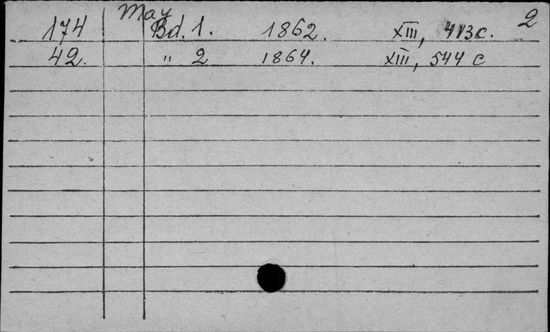 May 2
174 Bd. 1. 1862. XIII, 413c.
42. " 2 1864. XIII, 544 c